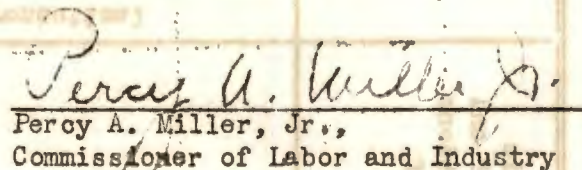 Percy A. Miller Jr.
Percy A. Miller, Jr.,
Commissioner of Labor and Industry